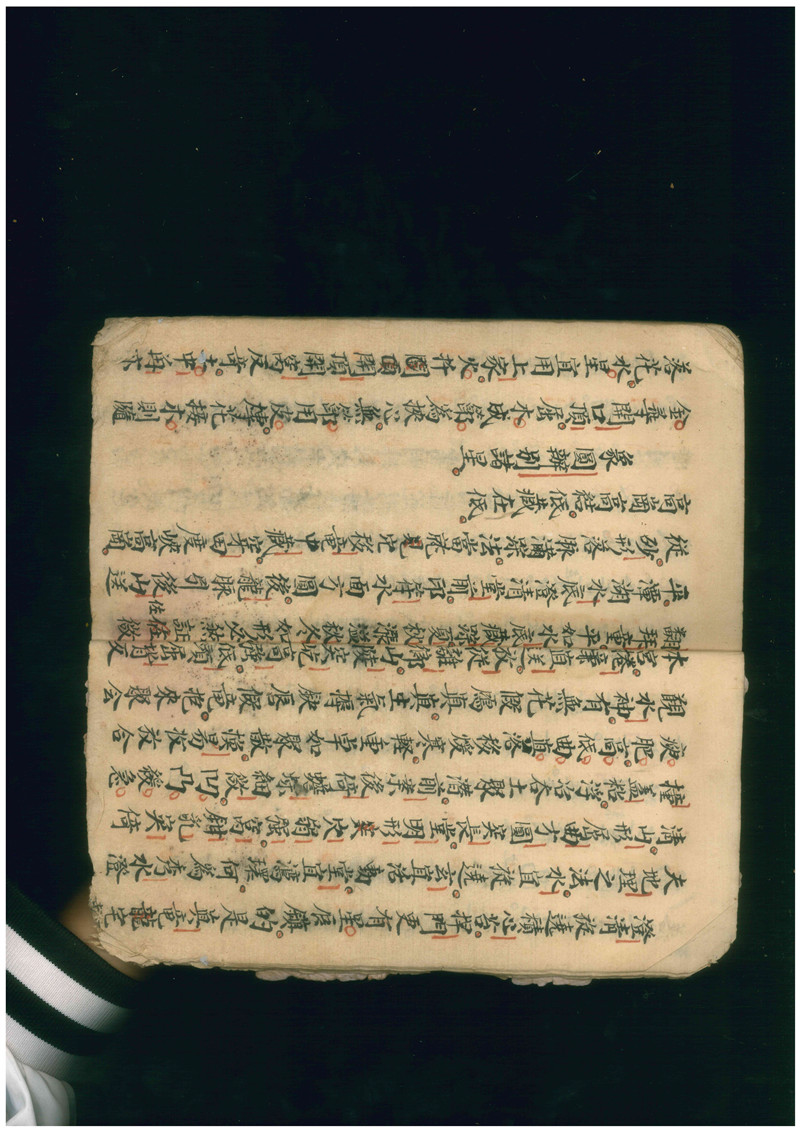 澄清旋遶積心苔捍門更有星辰鎮的是真竜龍宅
夫地理之法水宜旋遶玄宜活動堂宜灣環何為秀水澄
清山形屈曲方圓突長堂明形突穴弱强窩鉗乳突倚
撞盖粘浮沿吞土聚潛前案後倚蟾 細微凹凸緩急
瘐肥高低曲真落移煖寒軽重卓如聚散換易 合
觀水神有無花假 真真主氣 缺唇假竜抱來聚会
本宮捲棄直送 從離鄉山陵突屹高强低頭屈背反
翻拜童平如水底藏踪夏秋漲溢秋冬如形必然証佐微
佐
平潭湖水底澄清堂前印符水面方圓後龍脉引後山送
從砂形落脉滿踪法當 見它移竜中藏穿田度峽高崗
高崗高結低藏在低
象圓辦别諸星
金尋開口頂屈木成節為挾心無節用皮 花接木則隨
落花水星宜用上家火扦 頂開頂開窩反 土中